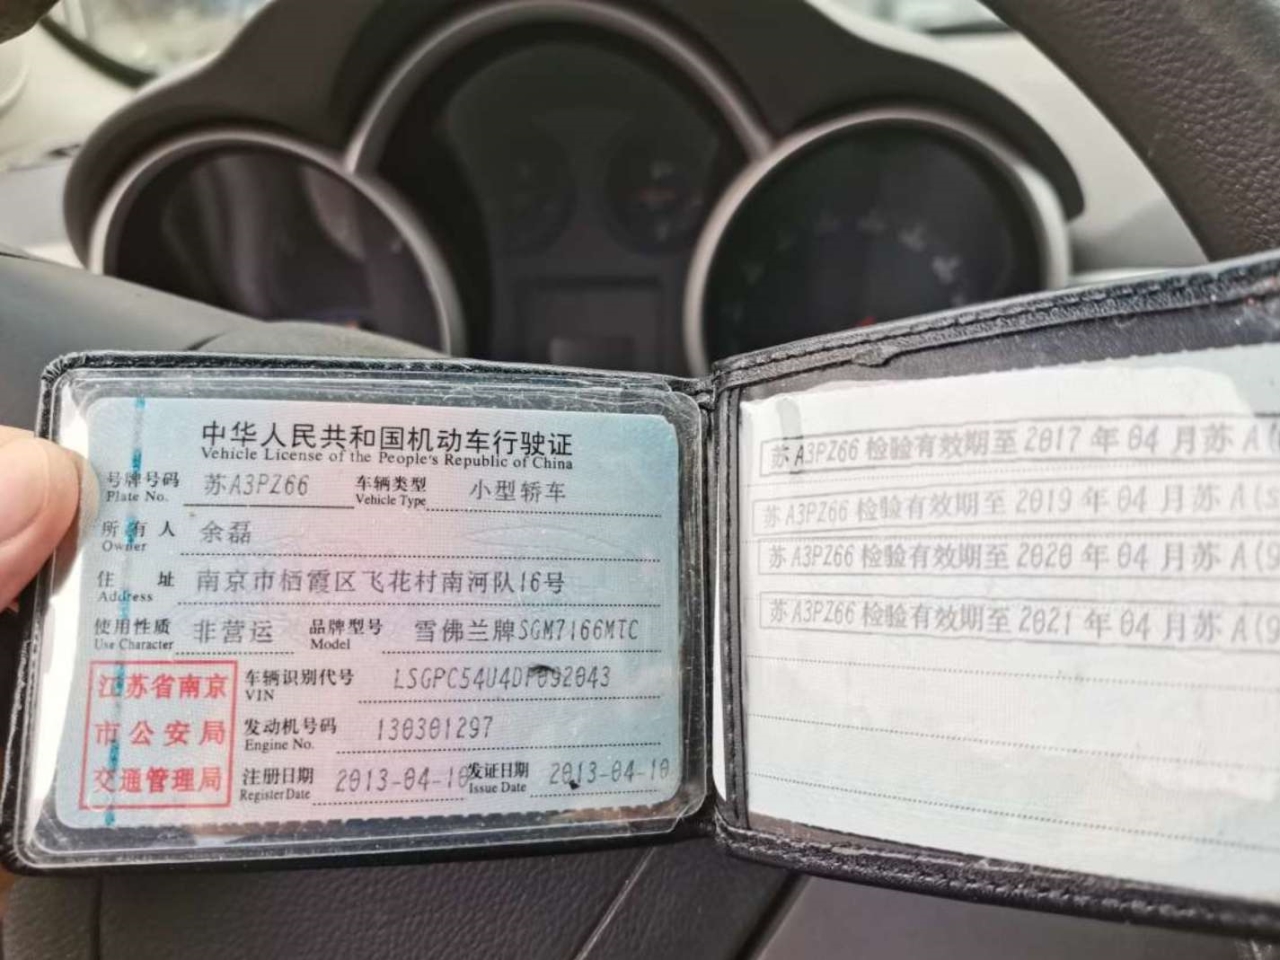 中华人民共和国机动车行驶证
Vehicle License of the People's Republic of China
号牌号码 苏A3PZ66 车辆类型 小型轿车
Plate No. Vehicle Type
所有人 余磊
Owner
住址 南京市栖霞区飞花村南河队16号
Address
使用性质 非营运 品牌型号 雪佛兰牌SGM7166MTC
Use Character Model
江苏省南京
市公安局
交通管理局
车辆识别代号 LSGPC54U4DF092043
VIN
发动机号码 130301297
Engine No.
注册日期 2013-04-10 发证日期 2013-04-10
Register Date Issue Date
苏A3PZ66 检验有效期至 2017 年 04 月 苏A(
苏A3PZ66 检验有效期至 2019 年 04 月 苏A(
苏A3PZ66 检验有效期至 2020 年 04 月 苏A(9
苏A3PZ66 检验有效期至 2021 年 04 月 苏A(9